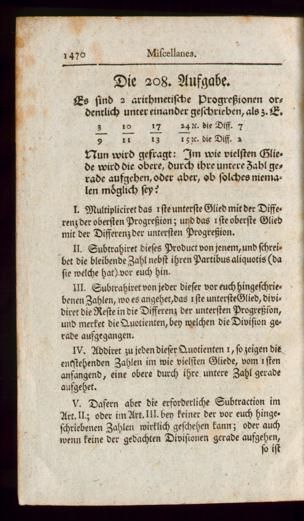 1470 Miscellanea.
Die 208. Aufgabe.
Es sind 2 arithmetische Progreßionen or-
dentlich unter einander geschrieben, als z. E.
3 10 17 24 ꝛc. die Diff. 7
9 11 13 15 ꝛc. die Diff. 2
Nun wird gefragt: Im wie vielsten Glie-
de wird die obere, durch ihre untere Zahl ge-
rade aufgehen, oder aber, ob solches niema-
len möglich sey?
I. Multipliciret das 1ste unterste Glied mit der Diffe-
renz der obersten Progreßion; und das 1ste oberste Glied
mit der Differenz der untersten Progreßion.
II. Subtrahiret dieses Product von jenem, und schrei-
bet die bleibende Zahl nebst ihren Partibus aliquotis (da
sie welche hat) vor euch hin.
III. Subtrahiret von jeder dieser vor euch hingeschrie-
benen Zahlen, wo es angehet, das 1ste unterste Glied, divi-
diret die Reste in die Differenz der untersten Progreßion,
und merket die Quotienten, bey welchen die Division ge-
rade aufgegangen.
IV. Addiret zu jeden dieser Quotienten 1, so zeigen die
entstehenden Zahlen im wie vielsten Gliede, vom 1sten
anfangend, eine obere durch ihre untere Zahl gerade
aufgehet.
V. Dafern aber die erforderliche Subtraction im
Art. II.; oder im Art. III. bey keiner der vor euch hinge-
schriebenen Zahlen wirklich geschehen kann; oder auch
wenn keine der gedachten Divisionen gerade aufgehen,
so ist